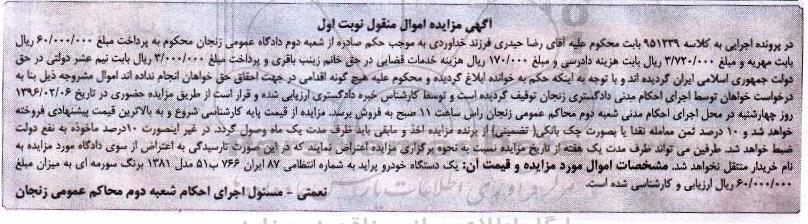 آگهی مزایده اموال منقول نوبت اول
در پرونده اجرایی به کلاسه ۹۵۱۳۳۹ بابت محکوم علیه آقای رضا حیدری فرزند خداوردی به موجب حکم صادره از شعبه دوم دادگاه عمومی زنجان محکوم به پرداخت مبلغ ۶۰/۰۰۰/۰۰۰ ریال
بابت مهریه و مبلغ ۳/۷۲۰/۰۰۰ ریال بابت هزینه دادرسی و مبلغ ۱۷۰/۰۰۰ ریال هزینه خدمات قضایی در حق خانم زینب باقری و پرداخت مبلغ ۳/۰۰۰/۰۰۰ ریال بابت نیم عشر دولتی در حق
دولت جمهوری اسلامی ایران گردیده اند و با توجه به اینکه حکم به خوانده ابلاغ گردیده و محکوم علیه هیچ گونه اقدامی در جهت احقاق حق خواهان انجام نداده اند اموال مشروحه ذیل بنا به
درخواست خواهان توسط اجرای احکام مدنی دادگستری زنجان توقیف گردیده است و توسط کارشناس خبره دادگستری ارزیابی شده و قرار است از طریق مزایده حضوری در تاریخ ۱۳۹۶/۰۲/۰۶
روز چهارشنبه در محل اجرای احکام مدنی شعبه دوم محاکم عمومی زنجان راس ساعت ۱۱ صبح به فروش برسد. مزایده از قیمت پایه کارشناسی شروع و به بالاترین قیمت پیشنهادی فروخته
خواهد شد و ۱۰ درصد ثمن معامله نقدا یا بصورت چک بانکی( تضمینی) از برنده مزایده اخذ و مابقی باید ظرف مدت یک ماه وصول گردد. در غیر اینصورت ۱۰درصد ماخوذه به نفع دولت
ضبط خواهد شد. طرفین می توانند ظرف مدت یک هفته از تاریخ مزایده نسبت به نحوه برگزاری مزایده اعتراض نمایند که در این صورت تارسیدگی به اعتراض از سوی دادگاه مورد مزایده به
نام خریدار منتقل نخواهد شد. مشخصات اموال مورد مزایده و قیمت آن: یک دستگاه خودرو پراید به شماره انتظامی ۸۷ ایران ۷۶۶ ب۵۱ مدل ۱۳۸۱ برنگ سورمه ای به میزان مبلغ
۶۰/۰۰۰/۰۰۰ ریال ارزیابی و کارشناسی شده است.
نعمتی - مسئول اجرای احکام شعبه دوم محاکم عمومی زنجان